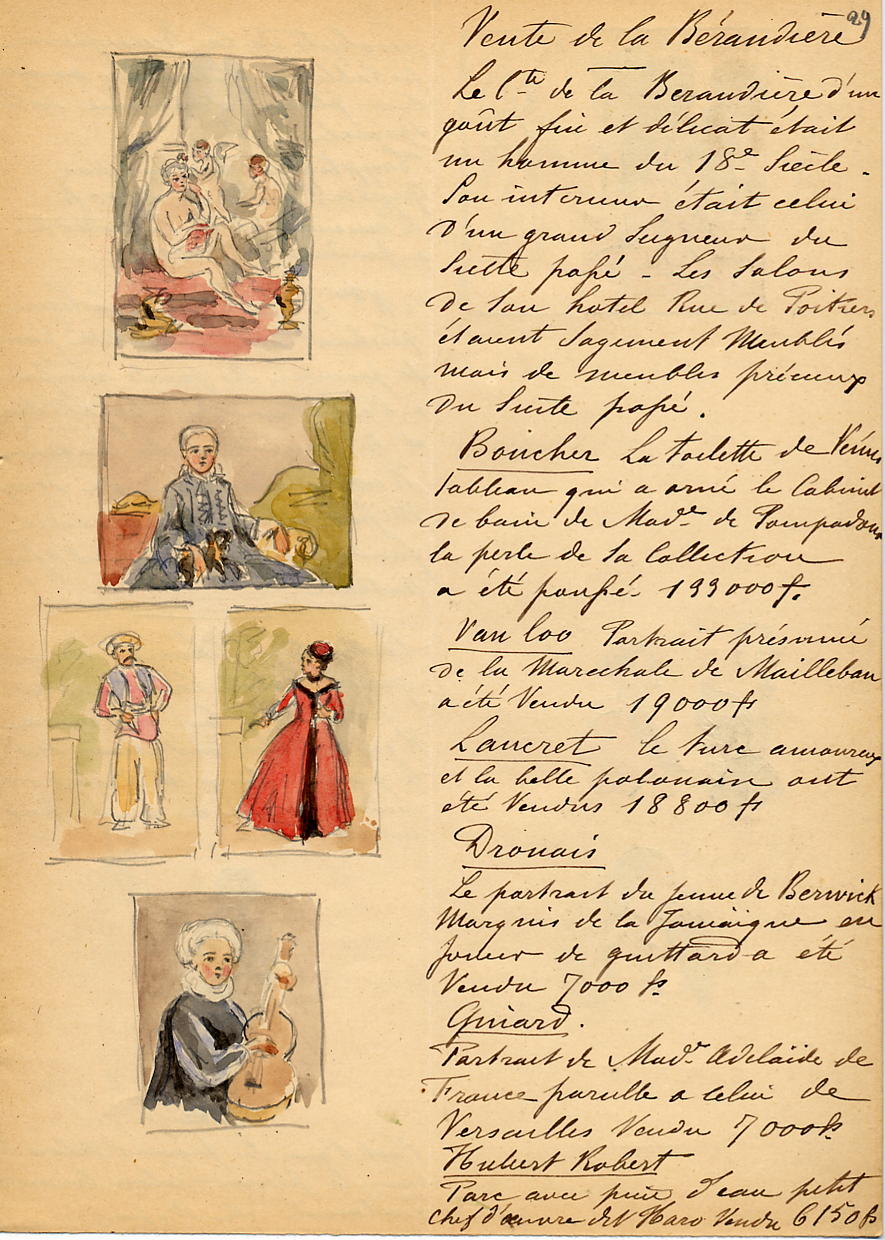 29
Vente de la Bérandière
Le Cte de la Berandière d'un
goût fin et délicat était
un homme du 18e Siècle.
Son interieur était celui
D'un grand Seigneur du
Siecle passé - Les Salons
de Son hotel Rue de Poitiers
étaient Sagement Meublés
mais de meubles précieux
Du Siecle passé.
Boucher La toilette de Vénus
tableau qui a orné le Cabinet
de bain de Made de Pompadour
la perle de Sa Collection
a été poussé. 133000f.
Van loo Portrait présumé
de la Marechale de Maillebau
a été Vendu 19000fs
Lancret le turc amoureux
et la belle polonaise ont
été Vendus 18800fs
Drouais
Le portrait du jeune de Berwick
Marquis de la Jamaique en
joueur de guittard a été
Vendu 7000 fs
Guiard.
Portrait de Made Adelaide de
France pareille a celui de
Versailles Vendu 7000fs
Hubert Robert
Parc avec d'eau petit
chef d'œuvre Haro Vendu 6150fs